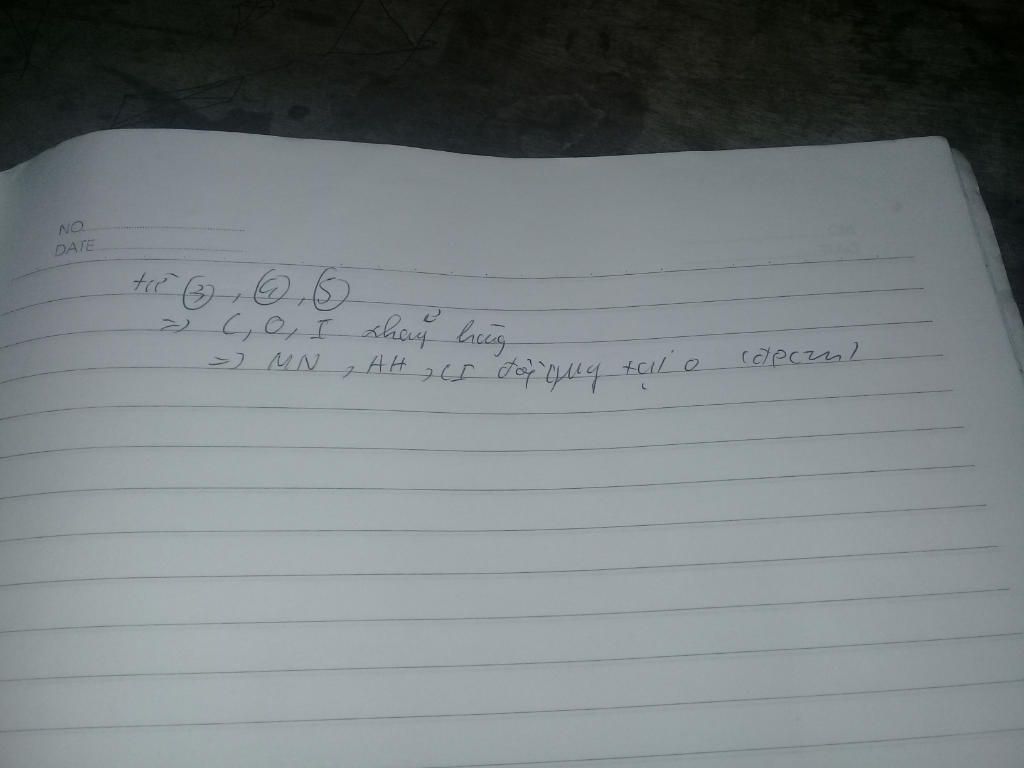 NO
DATE
từ ③, ④, ⑤
=> C, O, I thẳng hàng
=> MN, AH, CI đồng quy tại O (đpcm)